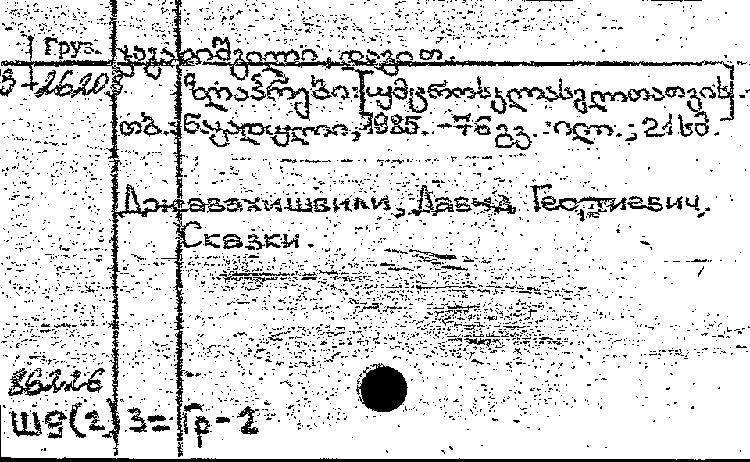 Груз.
ჯავახიშვილი, დავით.
ზღაპრები: [უმცროსკლასელთათვის]. -
თბ.: ნაკადული, 1985. -76გვ. :ილ. ; 21სმ.
Джавахишвили, Давид Георгиевич.
Сказки.
86226
шд(2) 3= Гр-2